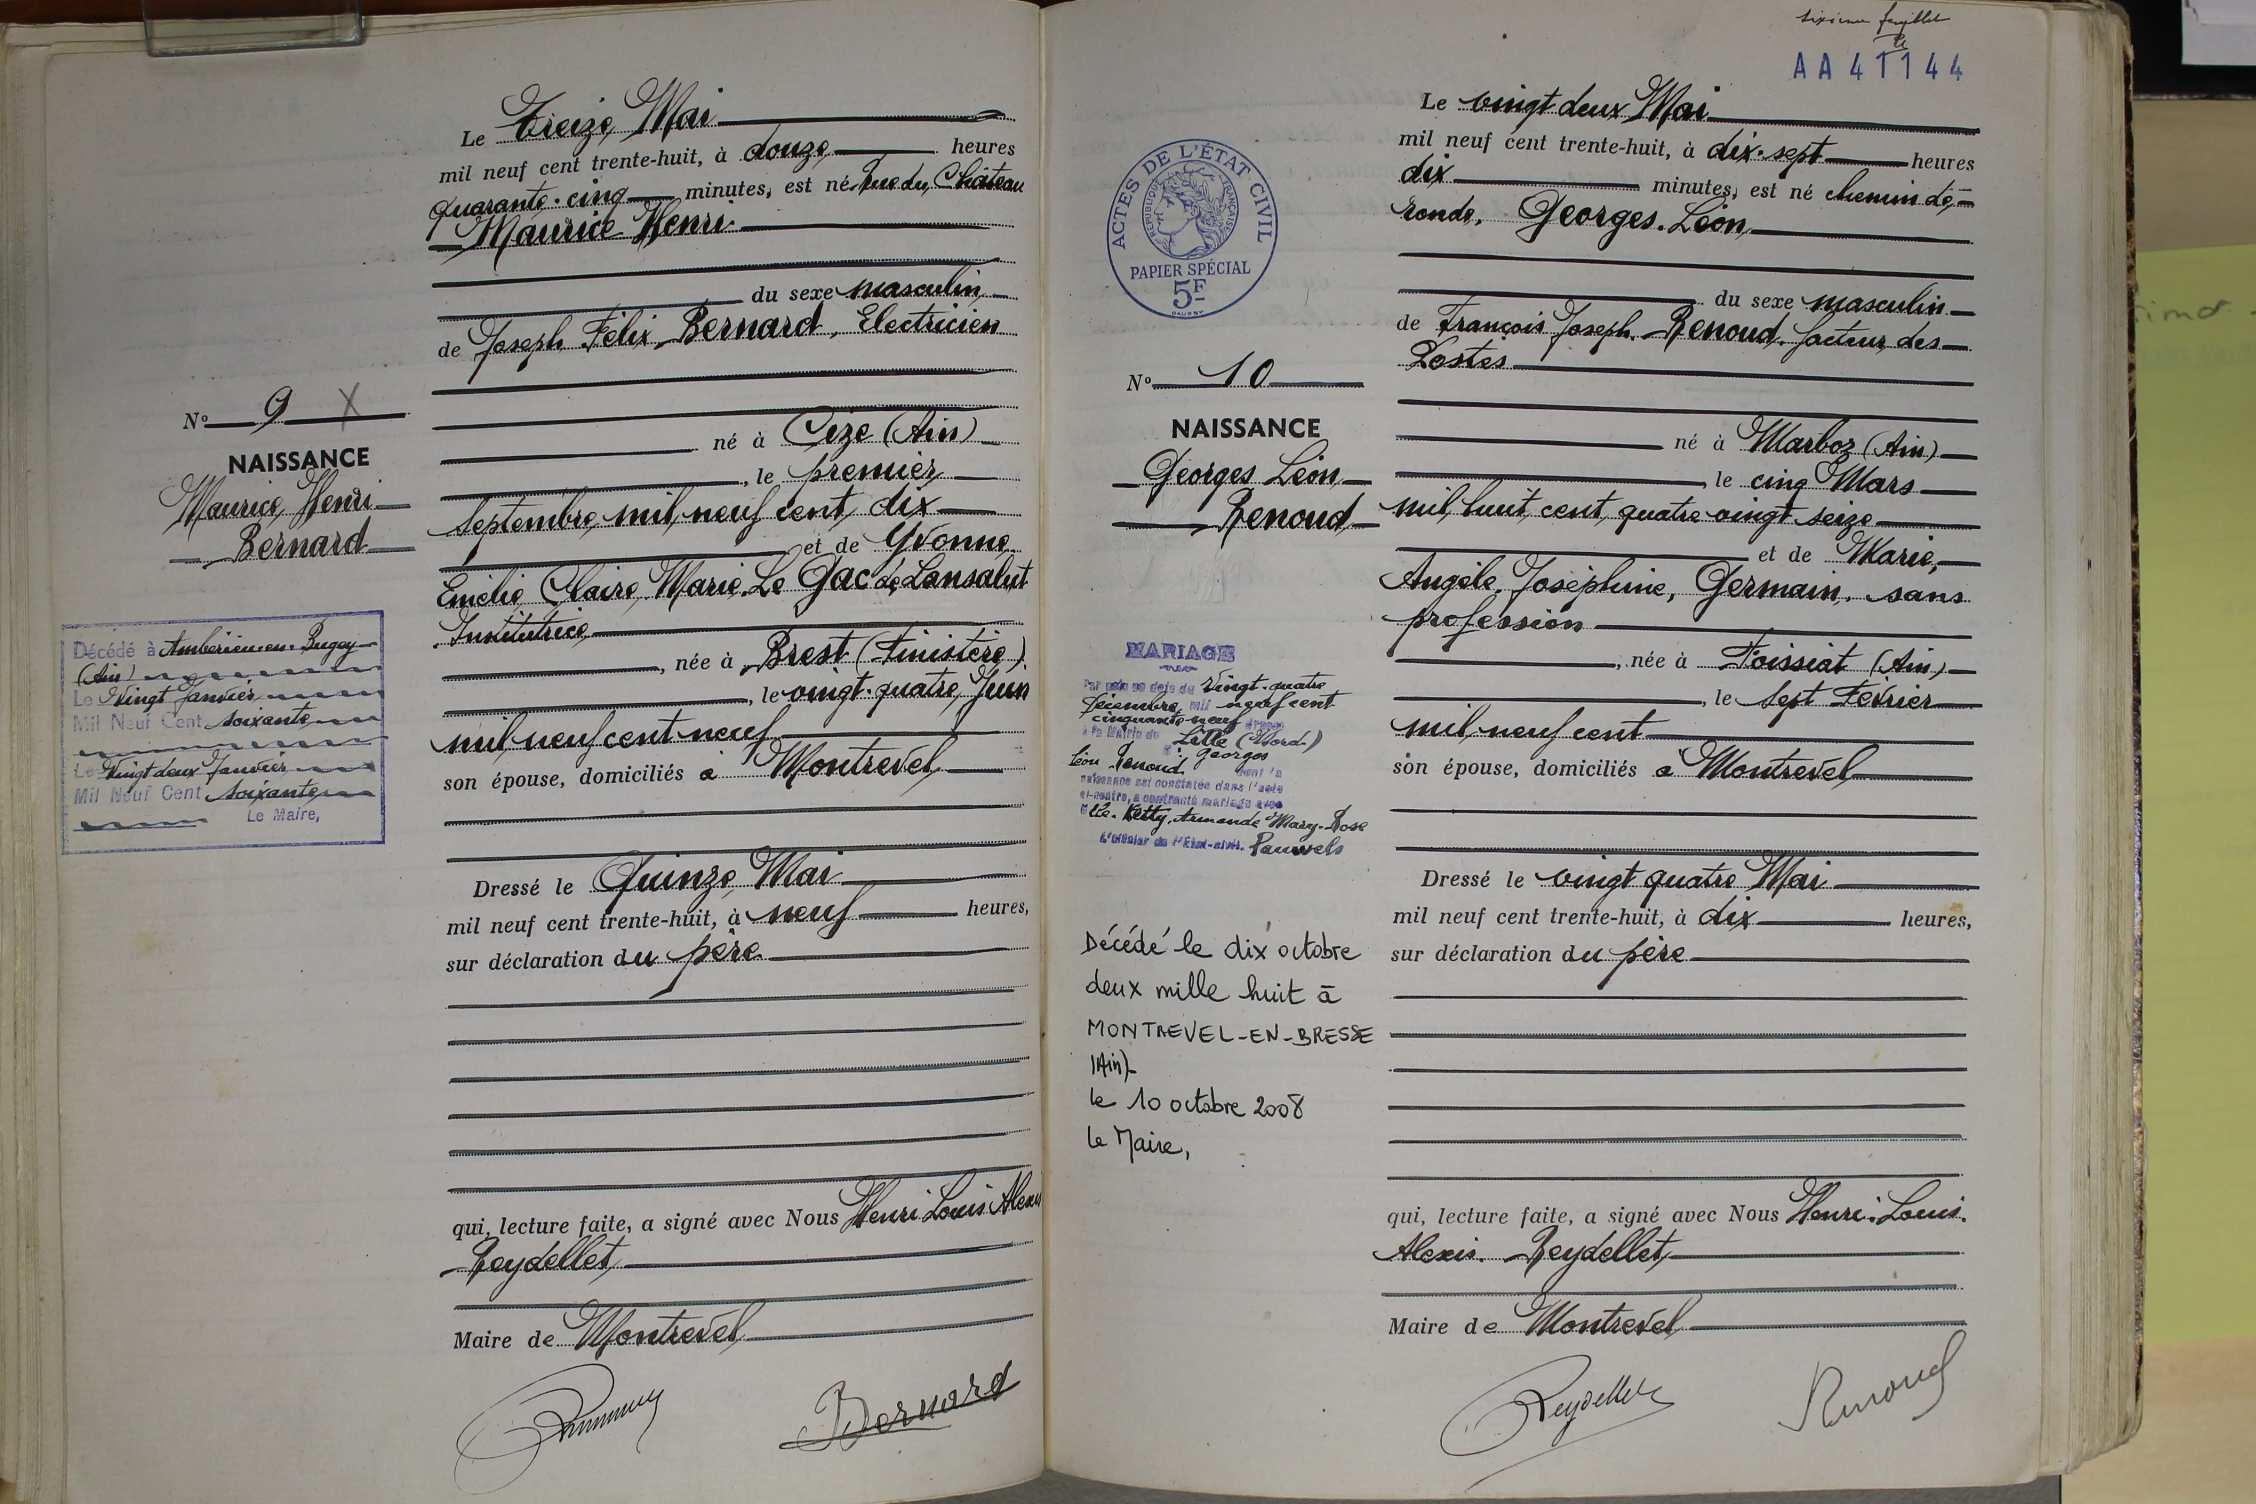 Le Treize Mai
mil neuf cent trente-huit, à douze heures
quarante-cinq minutes, est né Rue du Château
Maurice Henri
du sexe masculin
de Joseph Félix Bernard, Electricien
né à Cize (Ain)
, le premier
septembre mil neuf cent dix
et de Yvonne
Emélie Claire Marie Le Gac de Lansalut
Institutrice
, née à Brest (Finistère)
, le vingt-quatre Juin
mil neuf cent neuf
son épouse, domiciliés à Montrevel
Dressé le Quinze Mai
mil neuf cent trente-huit, à neuf heures,
sur déclaration du père
qui, lecture faite, a signé avec Nous Henri Louis Alexis
Reydellet
Maire de Montrevel
Bernard
No 9 X
NAISSANCE
Maurice Henri
Bernard
Décédé à Ambérieu-en-Bugey
(Ain)
Le Vingt Janvier
Mil Neuf Cent soixante
Le Vingt deux Janvier
Mil Neuf Cent soixante
Le Maire,
sixième feuillet
AA41144
Le vingt deux Mai
mil neuf cent trente-huit, à dix-sept heures
dix minutes, est né chemin de
ronde, Georges Léon
du sexe masculin
de François Joseph Renoud, facteur des
Postes
né à Marboz (Ain)
, le cinq Mars
mil huit cent quatre vingt seize
et de Marie,
Angèle Joséphine, Germain, sans
profession
, née à Foissiat (Ain)
, le sept Février
mil neuf cent
son épouse, domiciliés à Montrevel
Dressé le vingt quatre Mai
mil neuf cent trente-huit, à dix heures,
sur déclaration du père
qui, lecture faite, a signé avec Nous Henri-Louis
Alexis Reydellet
Maire de Montrevel
Reydellet
Renoud
ACTES DE L'ÉTAT CIVIL
REPUBLIQUE FRANÇAISE
PAPIER SPÉCIAL
5F
No 10
NAISSANCE
Georges Léon
Renoud
MARIAGE
Par acte en date du Vingt-quatre
Décembre mil neuf cent
cinquante-neuf dressé
à la Mairie de Lille (Nord)
Georges
Léon Renoud dont la
naissance est constatée dans l'acte
ci-contre, a contracté mariage avec
Ketty, Armande Mary-Rose
L'officier de l'État-civil. Pauwels
Décédé le dix octobre
deux mille huit à
MONTREVEL-EN-BRESSE
(Ain)
le 10 octobre 2008
le Maire,